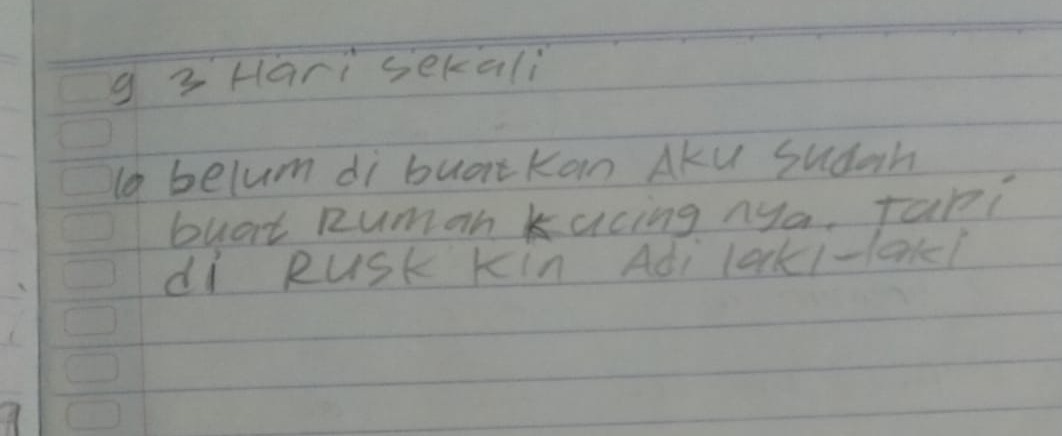 9 3 Hari sekali
10 belum di buatkan AKU Sudah
buat Rumah Kucing nya. Tapi
di RUSK Kin Adi laki-laki